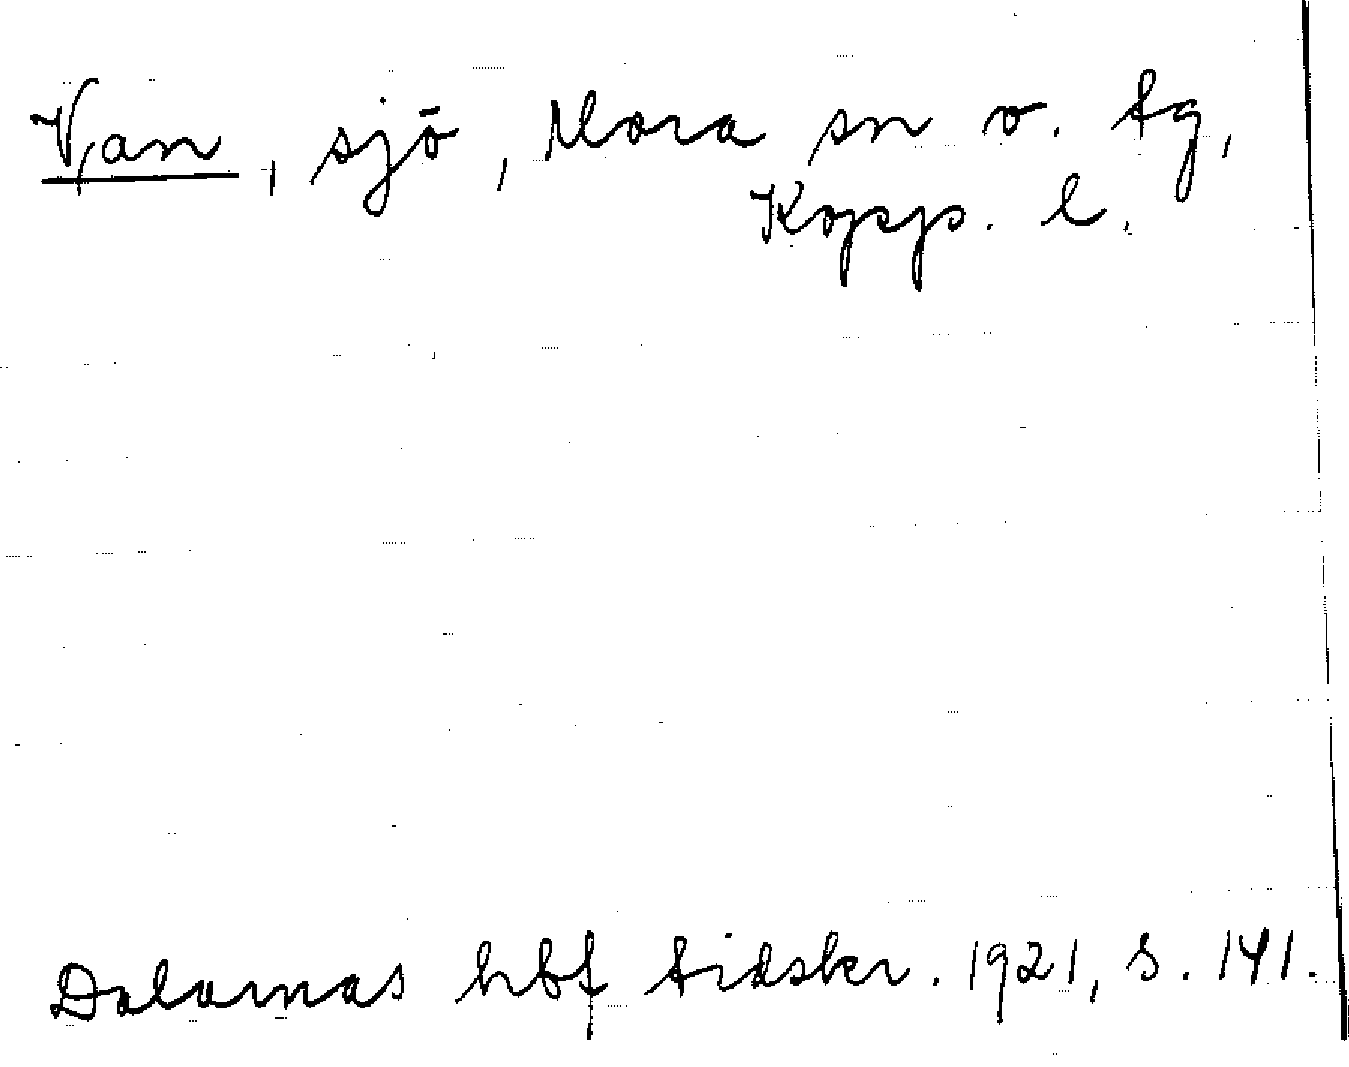 Van, sjö, Mora sn o. tg,
Kopp. l.
Dalarnas hbf tidskr. 1921, s. 141.